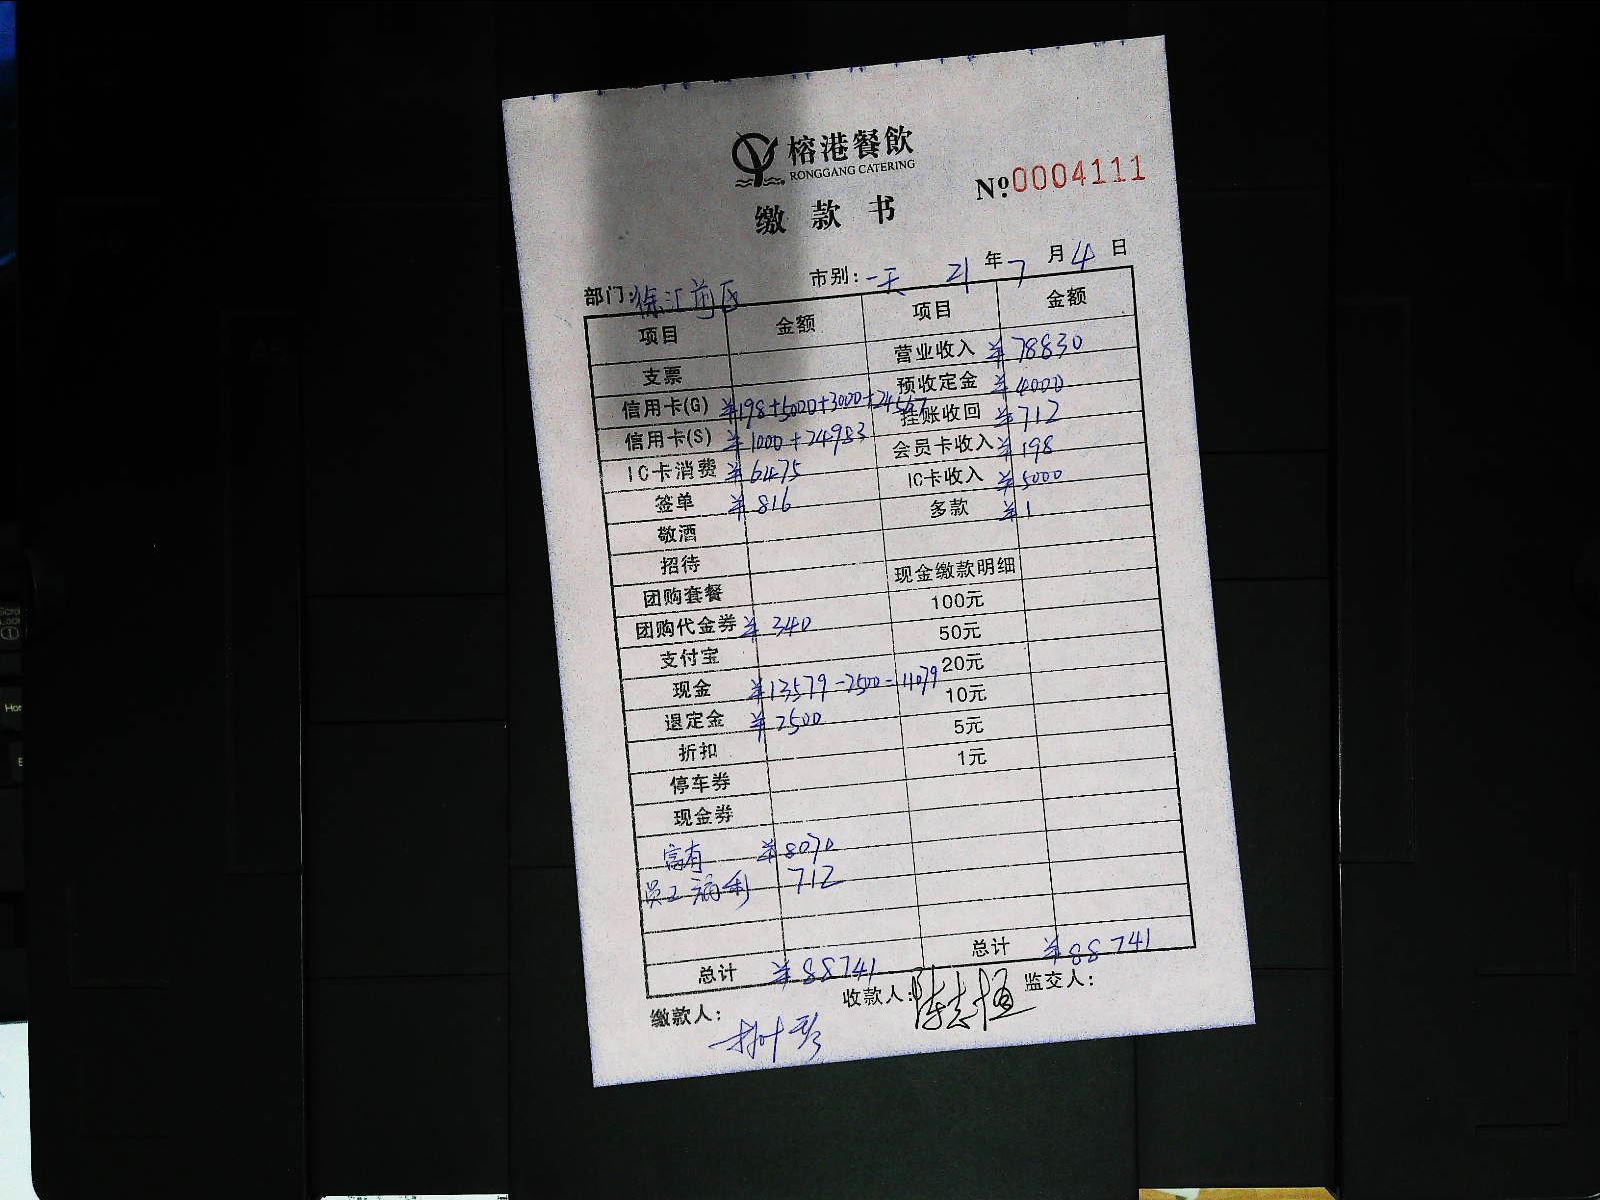 榕港餐飲
RONGGANG CATERING
缴款书
№0004111
部门:徐汇前区 市别:一天 21年7月4日
项目 金额 项目 金额
支票 营业收入 ¥78830
信用卡(G) ¥198+5000+3000+24567 预收定金 ¥4000
信用卡(S) ¥1000+24983 挂账收回 ¥712
IC卡消费 ¥6475 会员卡收入 ¥198
签单 ¥816 IC卡收入 ¥5000
敬酒 多款 ¥1
招待
团购套餐 现金缴款明细
团购代金券 ¥340 100元
支付宝 50元
现金 ¥13579-2500=11079 20元
退定金 ¥2500 10元
折扣 5元
停车券 1元
现金券
富有 ¥8070
员工福利 712
总计 ¥88741 总计 ¥88741
缴款人: 收款人:陈志恒 监交人: